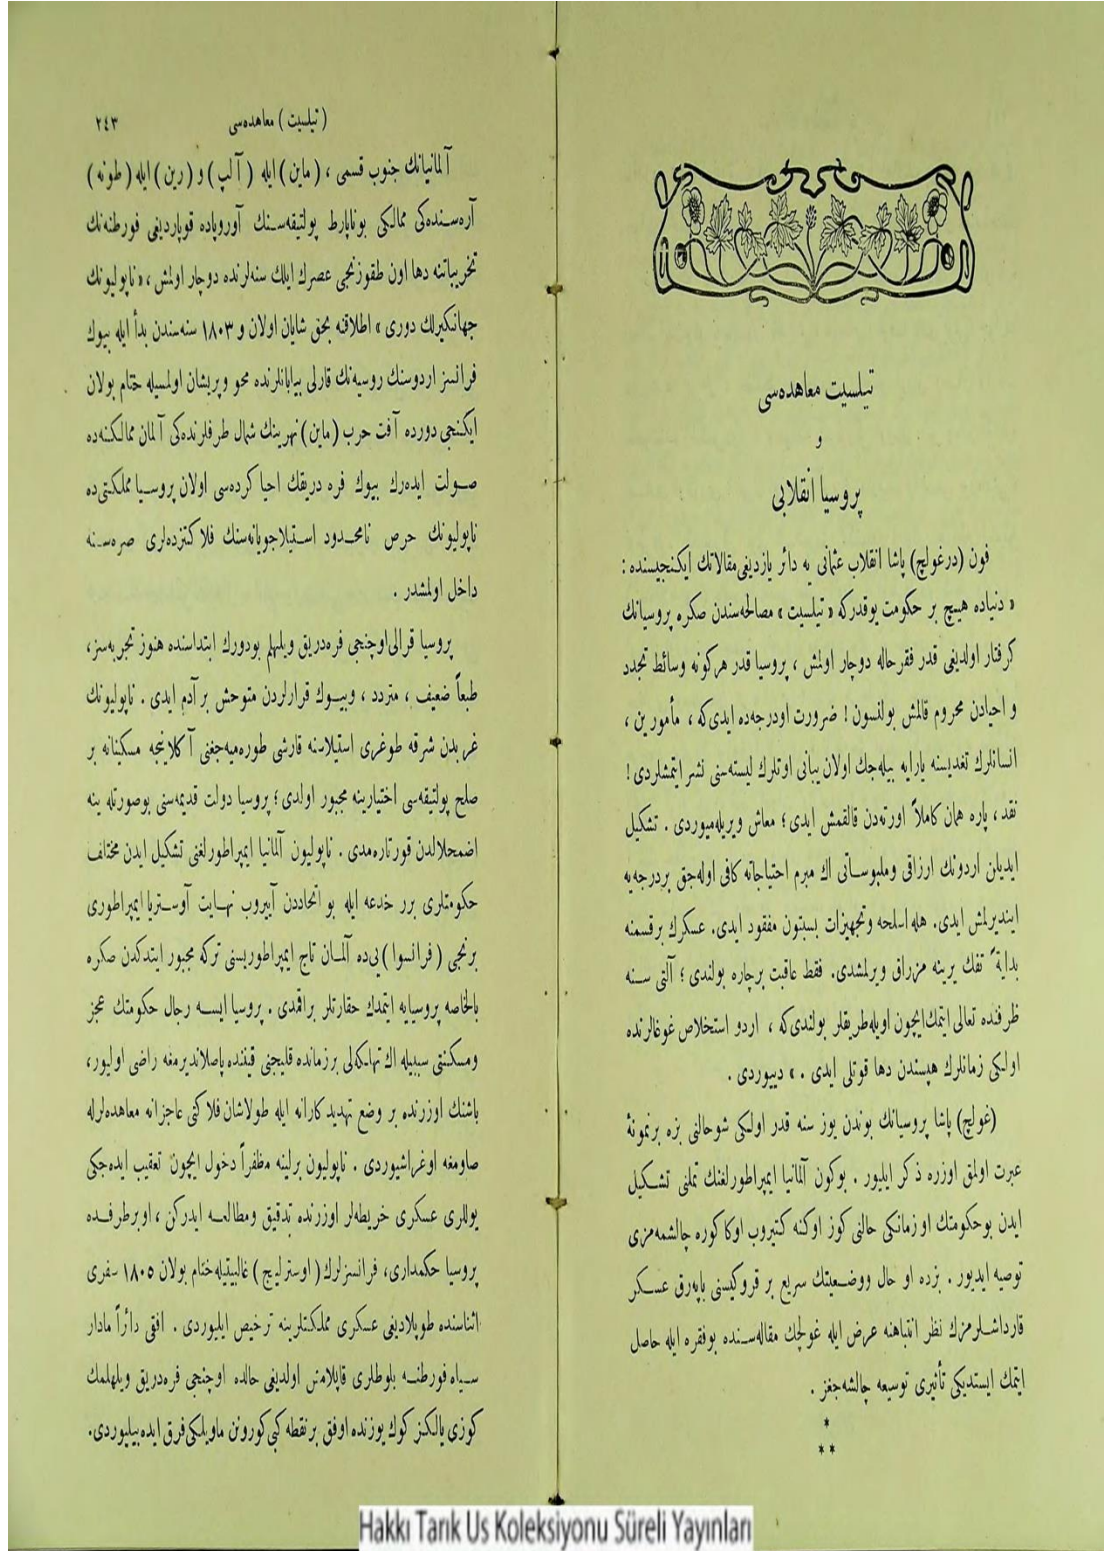 تيلسيت معاهده‌سى
و
پروسيا انقلابى
فون (درغولچ) پاشا انقلاب عثمانى يه دائر يازديغى مقالاتك ايكنجيسنده :
« دنياده هيچ بر حكومت يوقدركه « تيلسيت » مصالحه‌سندن صكره پروسيانك
گرفتار اولديغى قدر فقرحاله دوچار اولمش ، پروسيا قدر هركونه وسائط تجدد
و احيادن محروم قالمش بولنسون ! ضرورت اودرجه‌ده ايدى‌كه ، مأمورين ،
انسانلرك تغديسنه يارايه بيله‌جك اولان يبانى اوتلرك ليسته‌سنى نشر ايتمشلردى !
نقد ، پاره همان كاملاً اورته‌دن قالقمش ايدى ؛ معاش ويريله‌ميوردى . تشكيل
ايديلن اردونك ارزاق وملبوساتى اك مبرم احتياجاته كافى اوله‌جق بردرجه‌يه
اينديرلمش ايدى. هله اسلحه وتجهيزات بسبتون مفقود ايدى. عسكرك برقسمنه
بدايةً تفك يرينه مزراق ويرلمشدى. فقط عاقبت برچاره بولندى ؛ آلتى سنه
ظرفنده تعالى ايتمك‌ايچون اويله‌طريقلر بولندى‌كه ، اردو استخلاص غوغالرنده
اولكى زمانلرك هپسندن دها قوتلى ايدى . » دييوردى .
(غولچ) پاشا پروسيانك بوندن يوز سنه قدر اولكى شوحالنى بزه برنمونۀ
عبرت اولمق اوزره ذكر ايليور . بوكون آلمانيا ايمپراطورلغنك تملنى تشكيل
ايدن بوحكومتك او زمانكى حالنى كوز اوكنه كتيروب اوكا كوره چالشمه‌مزى
توصيه ايديور . بزده او حال ووضعيتك سريع بر قروكيسنى ياپه‌رق عسكر
قارداشلرمزك نظر انتباهنه عرض ايله غولچك مقاله‌سنده بوفقره ايله حاصل
ايتمك ايستديكى تأثيرى توسيعه چالشه‌جغز .
*
* *
(تيلسيت) معاهده‌سى ٢٤٣
آلمانيانك جنوب قسمى ، (ماين) ايله (آلپ) و (رين) ايله (طونه)
آره‌سنده‌كى ممالكى بوناپارط پولتيقه‌سنك آوروپاده قوپارديغى فورطنه‌نك
تخريباتنه دها اون طقوزنجى عصرك ايلك سنه‌لرنده دوچار اولمش ، « ناپوليونك
جهانكيرلك دورى » اطلاقنه بحق شايان اولان و ١٨٠٣ سنه‌سندن بدأ ايله بيوك
فرانسز اردوسنك روسيه‌نك قارلى بيابانلرنده محو وپريشان اولمسيله ختام بولان
ايكنجى دورده آفت حرب (ماين) نهرينك شمال طرفلرنده‌كى آلمان ممالكنه‌ده
صولت ايده‌رك بيوك فره دريقك احيا كرده‌سى اولان پروسيا مملكتى‌ده
ناپوليونك حرص نامحدود استيلاجويانه‌سنك فلاكتزده‌لرى صره‌سنه
داخل اولمشدر .
پروسيا قرالى‌اوچنجى فره‌دريق ويلهلم بودورك ابتداسنده هنوز تجربه‌سز،
طبعاً ضعيف ، متردد ، وبيوك قرارلردن متوحش برآدم ايدى . ناپوليونك
غربدن شرقه طوغرى استيلاسنه قارشى طوره‌ميه‌جغنى آكلاينجه مسكينانه بر
صلح پولتيقه‌سى اختيارينه مجبور اولدى ؛ پروسيا دولت قديمه‌سنى بوصورتله ينه
اضمحلالدن قورتاره‌مدى . ناپوليون آلمانيا ايمپراطورلغنى تشكيل ايدن مختلف
حكومتلرى برر خدعه ايله بو اتحاددن آييروب نهايت آوستريا ايمپراطورى
برنجى (فرانسوا) يى‌ده آلمان تاج ايمپراطوريسنى تركه مجبور ايتدكدن صكره
بالخاصه پروسيايه ايتمدك حقارتلر براقمدى . پروسيا ايسه رجال حكومتك عجز
ومسكنتى سببيله اك تهلكه‌لى برزمانده قليجنى قيننده پاصلانديرمغه راضى اوليور،
باشنك اوزرنده بر وضع تهديد كارانه ايله طولاشان فلاكتى عاجزانه معاهده‌لرله
صاومغه اوغراشيوردى . ناپوليون برلينه مظفراً دخول ايچون تعقيب ايده‌جكى
يوللرى عسكرى خريطه‌لر اوزرنده تدقيق ومطالعه ايدركن ، اوبرطرفده
پروسيا حكمدارى، فرانسزلرك (اوسترليچ) غالبيتيله‌ختام بولان ١٨٠٥ سفرى
اثناسنده طوپلاديغى عسكرى مملكتلرينه ترخيص ايليوردى . افقى دائراً مادار
سياه فورطنه بلوطلرى قاپلامش اولديغى حالده اوچنجى فره‌دريق ويلهلمك
كوزى يالكز كوك يوزنده اوفق برنقطه كبى كورونن ماويلكى فرق ايده‌بيليوردى.
Hakkı Tarık Us Koleksiyonu Süreli Yayınları